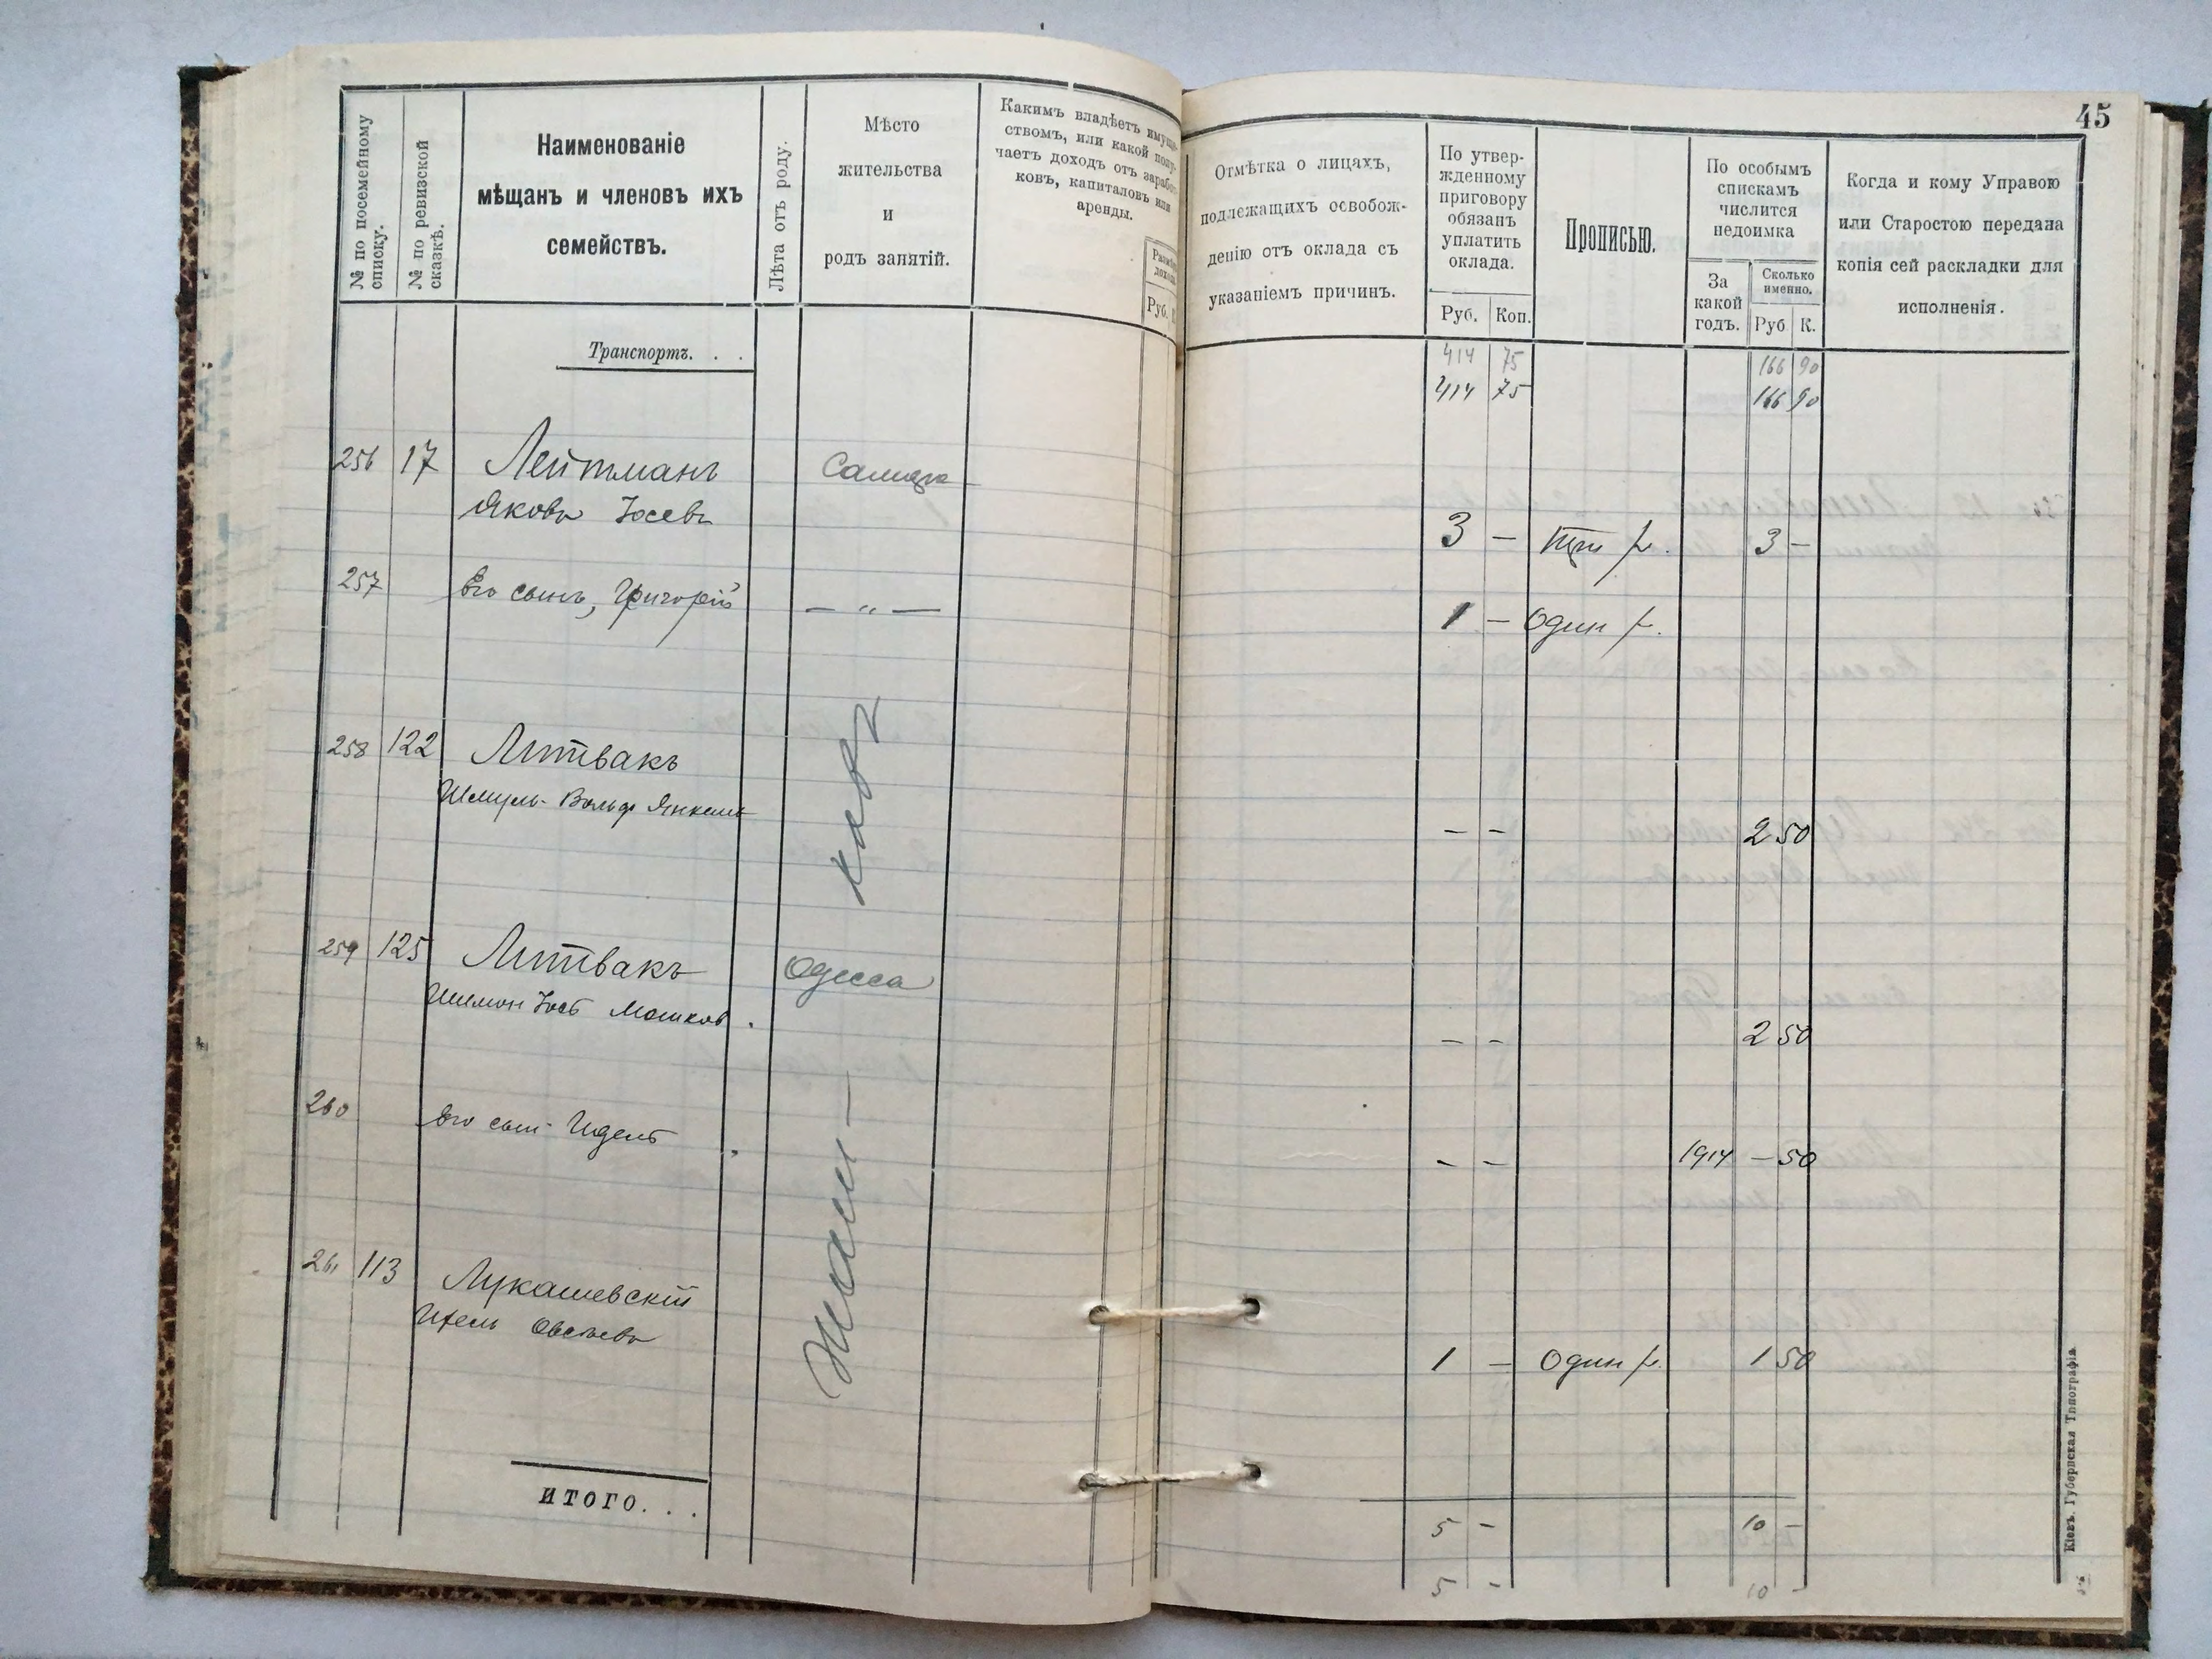 45
№ по посемейному
списку.
№ по ревизской
сказкѣ.
Наименованіе
мѣщанъ и членовъ ихъ
семействъ.
Лѣта отъ роду.
Мѣсто
жительства
и
родъ занятій.
Какимъ владѣетъ имуще-
ствомъ, или какой полу-
чаетъ доходъ отъ заработ-
ковъ, капиталовъ или
аренды.
Руб.
Отмѣтка о лицахъ,
подлежащихъ освобож-
денію отъ оклада съ
указаніемъ причинъ.
По утвер-
жденному
приговору
обязанъ
уплатить
оклада.
Руб. Коп.
Прописью.
По особымъ
спискамъ
числится
недоимка
За
какой
годъ.
Сколько
именно.
Руб К.
Когда и кому Управою
или Старостою передана
копія сей раскладки для
исполненія.
Транспортъ. . .
414 75 166 90
414 75 166 90
256 17 Лейтманъ
Яковъ Іосевъ
3 — три р. 3 —
257 Его сынъ, Григорій — „ —
1 — Один р.
258 122 Литвакъ
Шмуль-Вольф Янкель
— — 2 50
259 125 Литвакъ Одесса
Шимон Іось Мошков.
— — 2 50
260 Его сын Идель
— — 1914 — 50
261 113 Лукашевскій
Ицель Овсеевъ
1 — Один р. 1 50
итого. . .
5 — 10 —
5 - 10 -
Кіевъ. Губернская Типографія